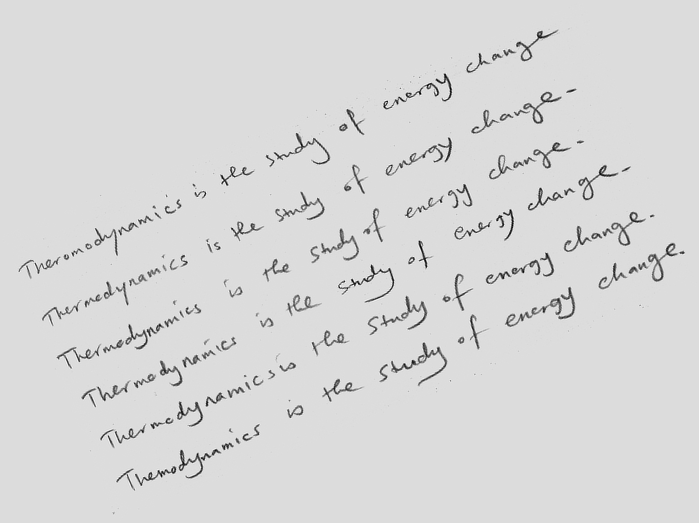 Theromodynamics is the study of energy change
Thermodynamics is the study of energy change-
Thermodynamics is the study of energy change.
Thermodynamics is the study of energy change-
Thermodynamics is the study of energy change.
Themodynamics is the study of energy change.